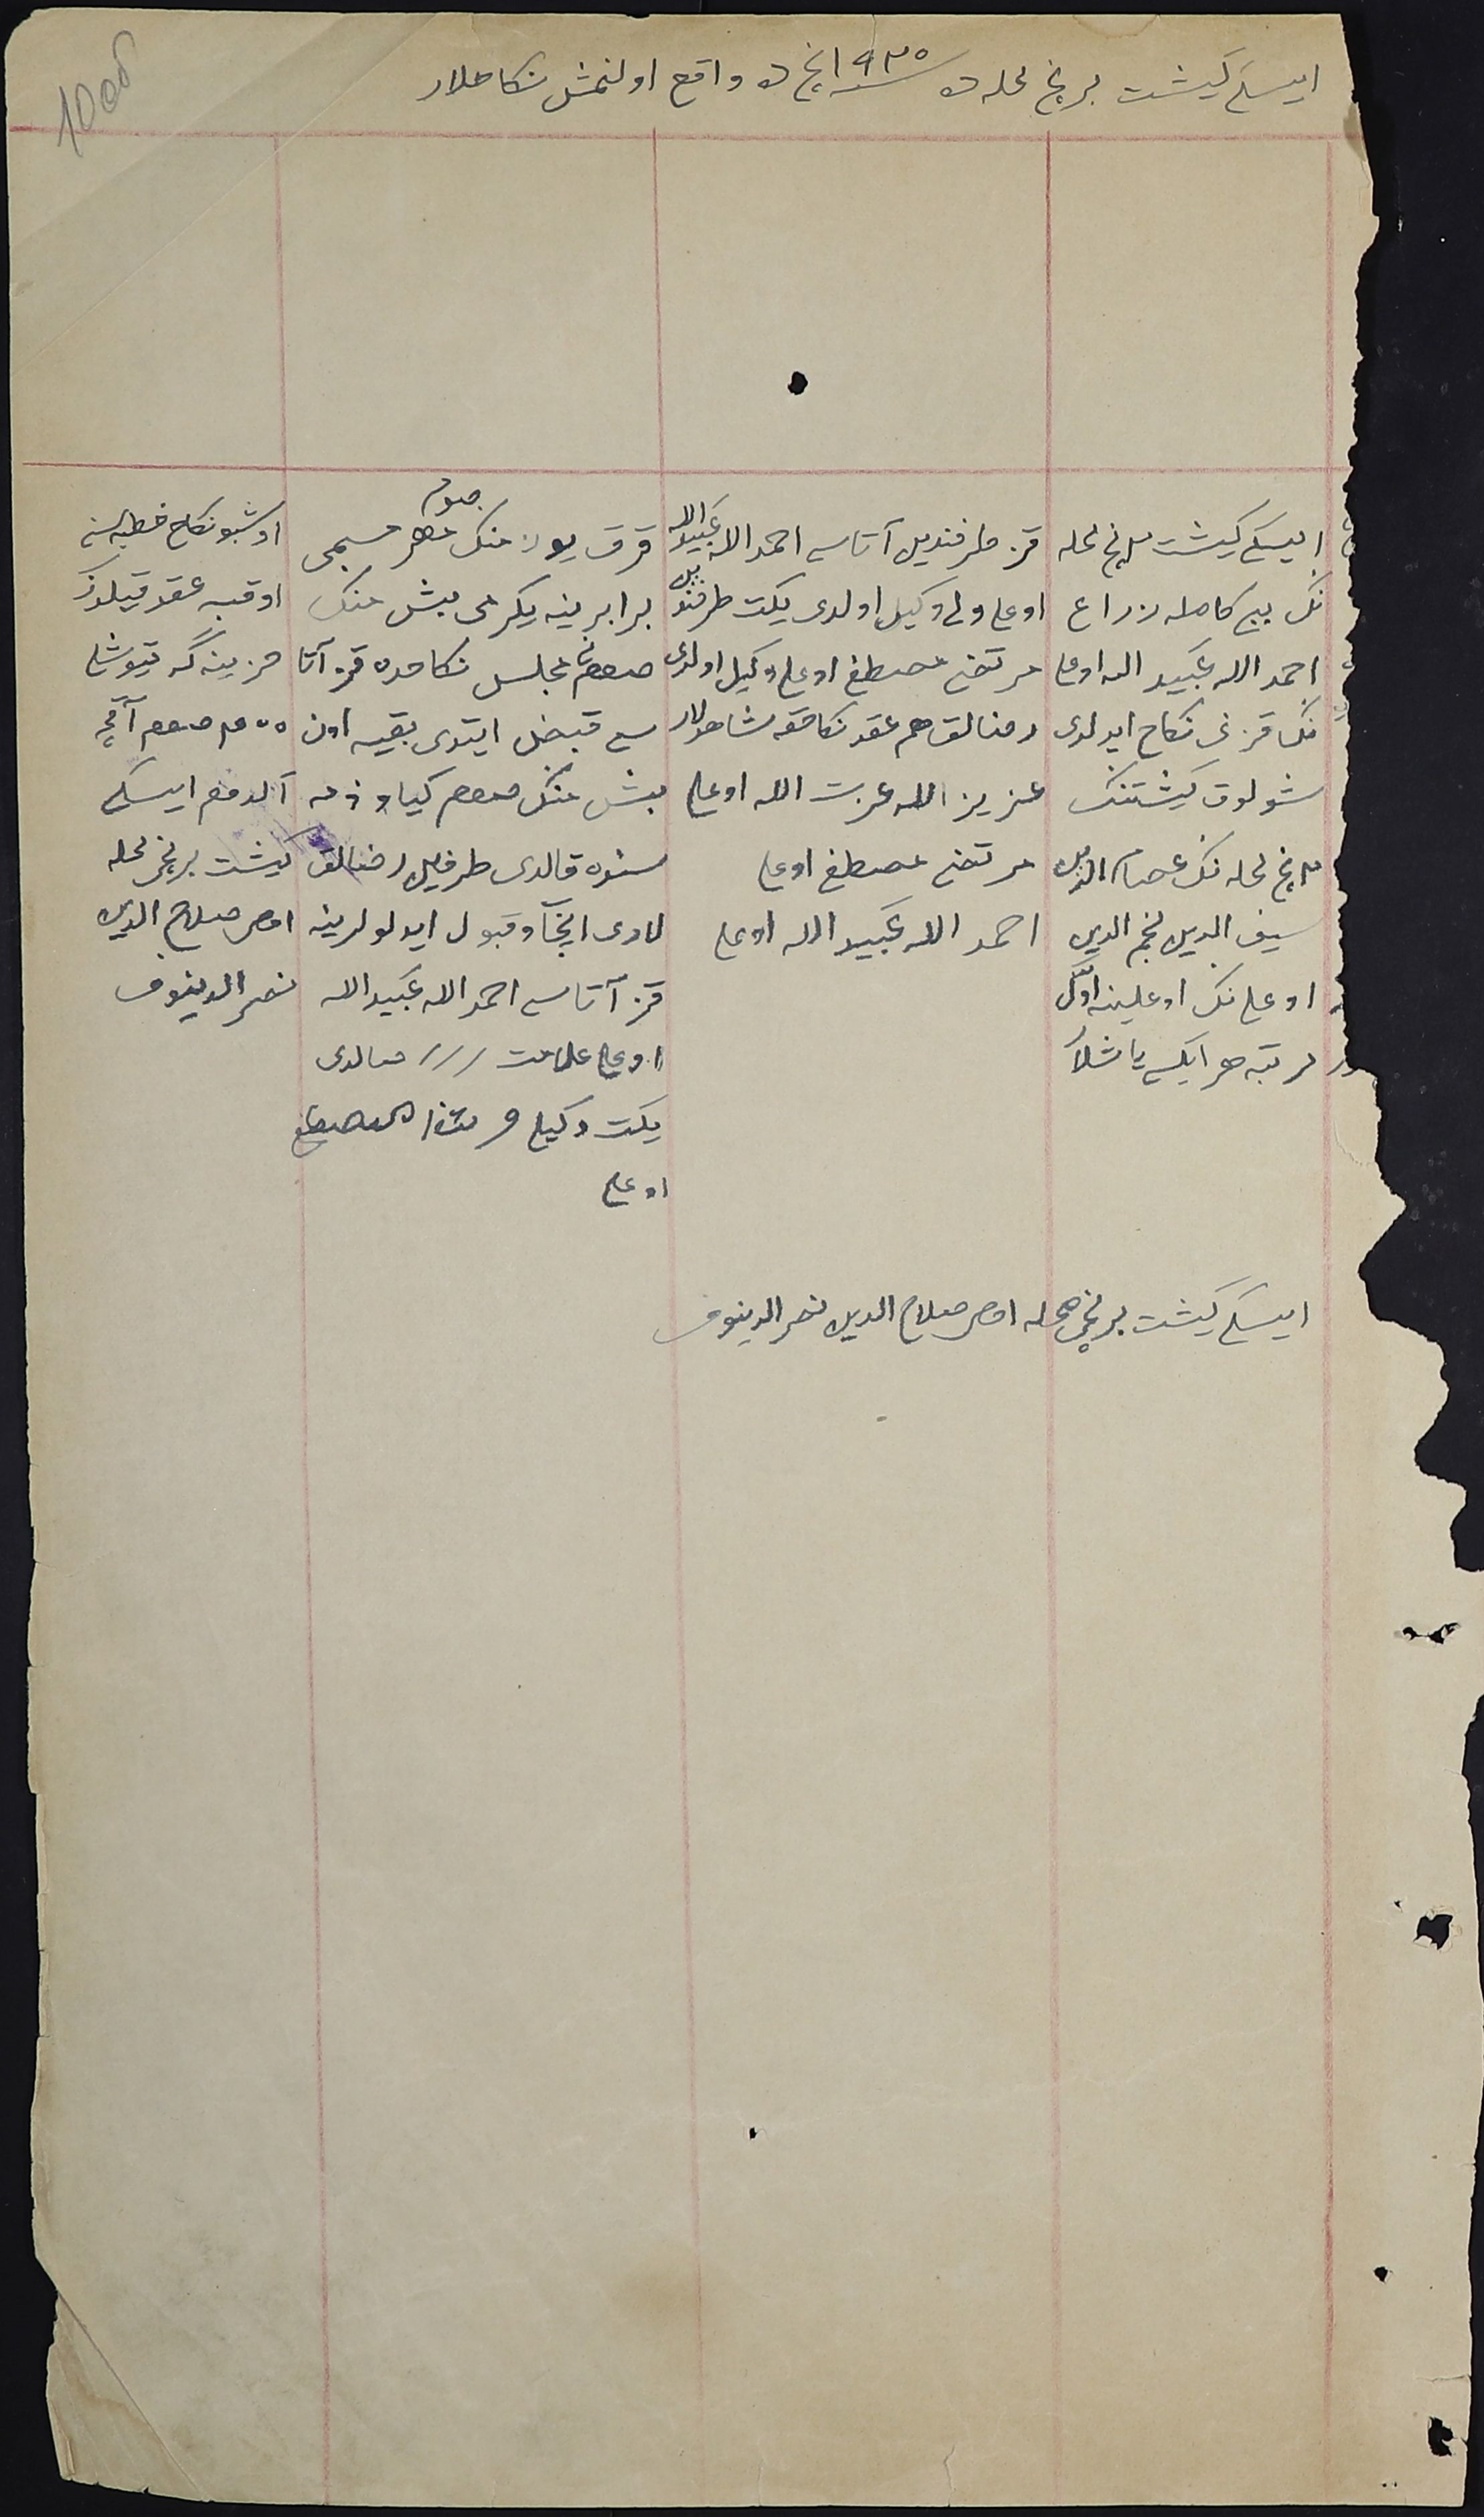 ایسکی کیشت برنچی محله ده ١٩٢٥ نچی ده واقع اولنمش نکاحلار
ایسکی کیشت برنچی محله
نک بیبی کامله زراع
احمد الله عبید الله اوغلی
نک قزنی نکاح ایدلدی
شولوق کیشتنک
برنچی محله نک عصام الدین
سیف الدین نجم الدین
اوغلی نک اوغلینه اوّل
مرتبه هر ایکسی یاشلار
قز طرفندین آتاسی احمد الله عبید الله
اوغلی ولی وکیل اولدی یکت طرفندین
مرتضی مصطفی اوغلی وکیل اولدی
رضالق هم عقد نکاحقه شاهدلار
عزیز الله عزت الله اوغلی
مرتضی مصطفی اوغلی
احمد الله عبید الله اوغلی
قرق یوز منک مهر مسمی
برابرینه یکرمی بیش منک
صومنی مجلس نکاحده قز آتا
سی قبض ایتدی بقیه اون
بیش منک صوم کیاو ذمه
سنده قالدی طرفین رضالق
لاری ایجاب و قبول ایدلولرینه
قز آتاسی احمد الله عبید الله
اوغلی علامت /// صالدی
یکت وکیلی مرتضی مصطفی
اوغلی
اوشبو نکاح خطبه سنی
اوقب عقد قیلدوق
خزینه گه تیوشلی
صوم آقچه
آلدم ایسکی
کیشت برنچی محله
امام صلاح الدین
نصر الدینوف
ایسکی کیشت برنچی محله امام صلاح الدین نصر الدینوف